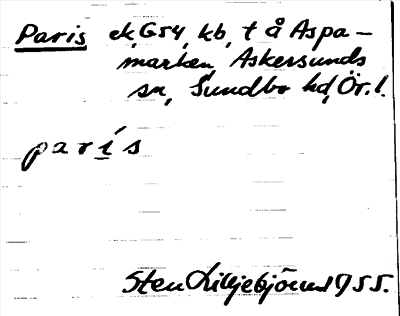 Paris ek, G54, kb, t å Aspa-
marken, Askersunds
sn, Sundbo hd, Ör. l.
parí̱s
Sten Liljebjörn 1955.